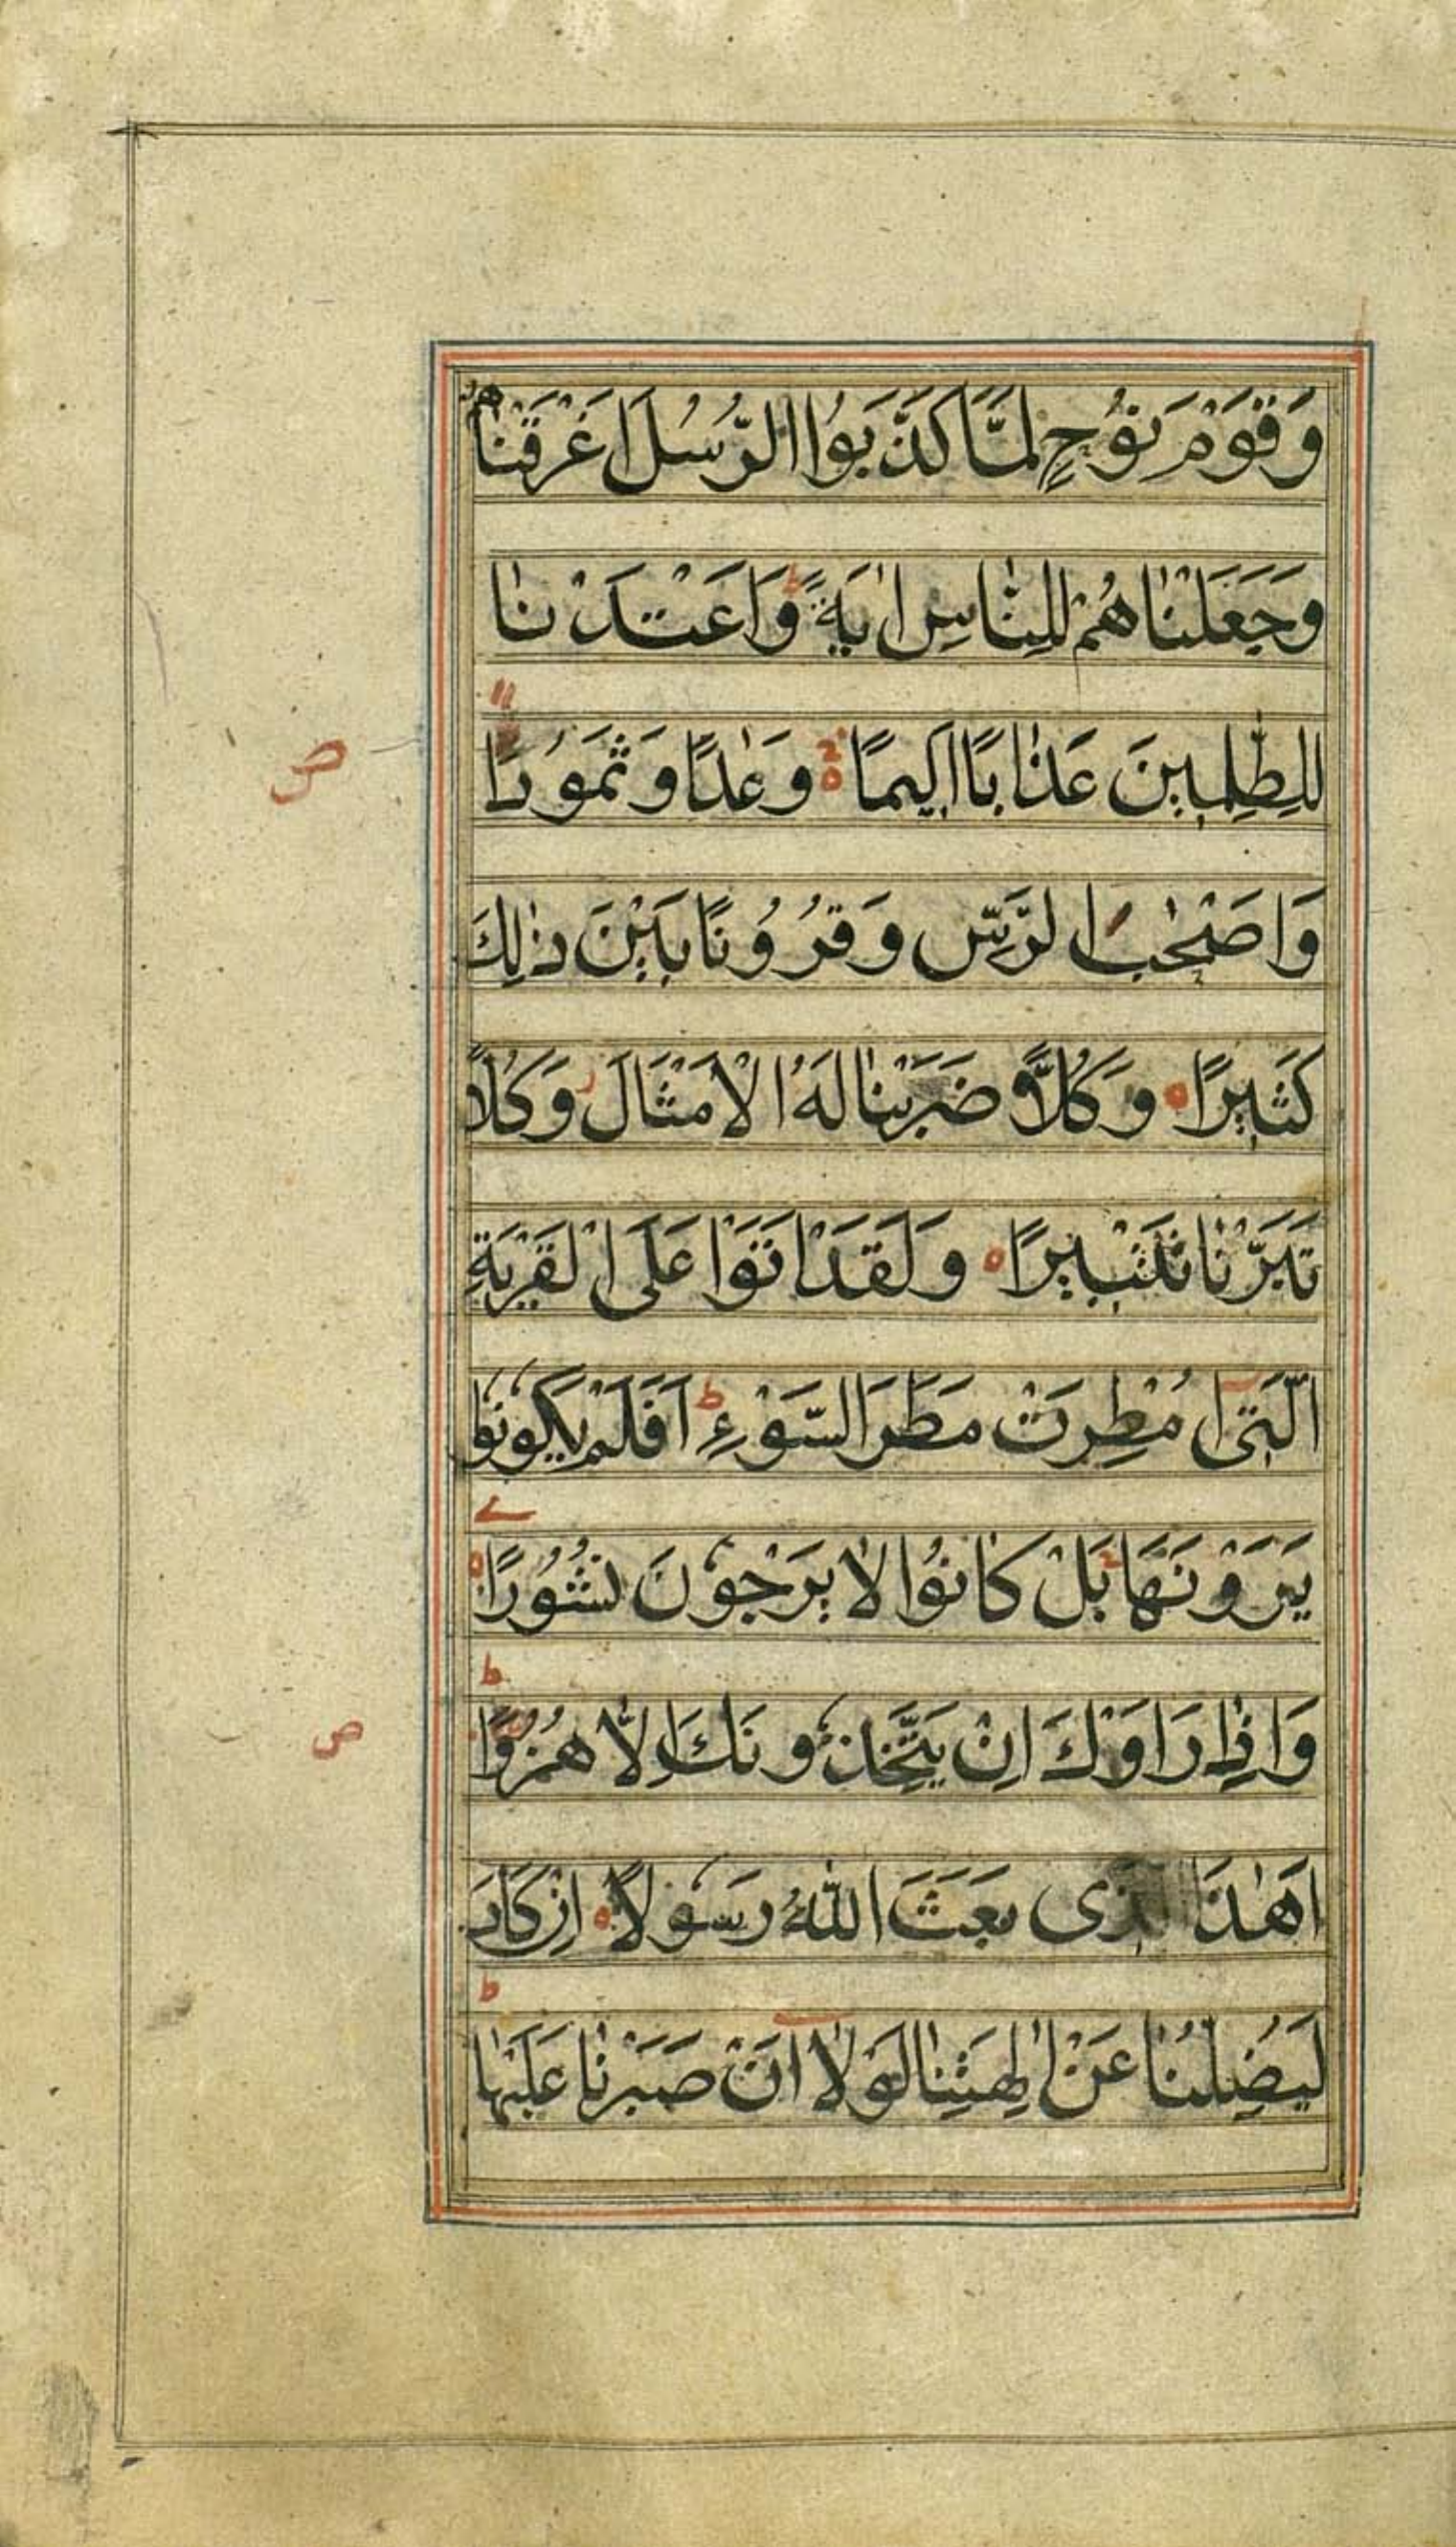 وَقَوْمَ نُوْحٍ لَمَّا كَذَّبُوا الرُّسُلَ اَغْرَقْنٰهُمْ
وَجَعَلْنٰاهُمْ لِلنّٰاسِ اٰيَةً ؕ وَاَعْتَدْنٰا
لِلظّٰلِمِينَ عَذٰابًا اَلِيمًا ۝ وَعٰدًا وَثَمُوْدَا۟
وَاَصْحٰبَ الرَّسِّ وَقُرُوْنًا بَيْنَ ذٰلِكَ
كَثِيرًا ۝ وَكُلًّا ضَرَبْنٰا لَهُ الْاَمْثَالَ ز وَكُلًّا
تَبَّرْنٰا تَتْبِيرًا ۝ وَلَقَدْ اَتَوْا عَلَى الْقَرْيَةِ
الَّتِىٓ اُمْطِرَتْ مَطَرَ السَّوْءِ ؕ اَفَلَمْ يَكُونُوا
يَرَوْنَهَا ۚ بَلْ كٰانُوْا لٰا يَرْجُوْنَ نُشُوْرًا ۝
ص
وَاِذٰا رَاَوْكَ اِنْ يَتَّخِذُوْنَكَ اِلّٰا هُزُوًا ؕ
ص
اَهٰذَا الَّذِى بَعَثَ اللّٰهُ رَسُوْلًا ۝ اِنْ كَادَ
لَيُضِلُّنٰا عَنْ اٰلِهَتِنٰا لَوْلٰٓا اَنْ صَبَرْنٰا عَلَيْهٰا ؕ